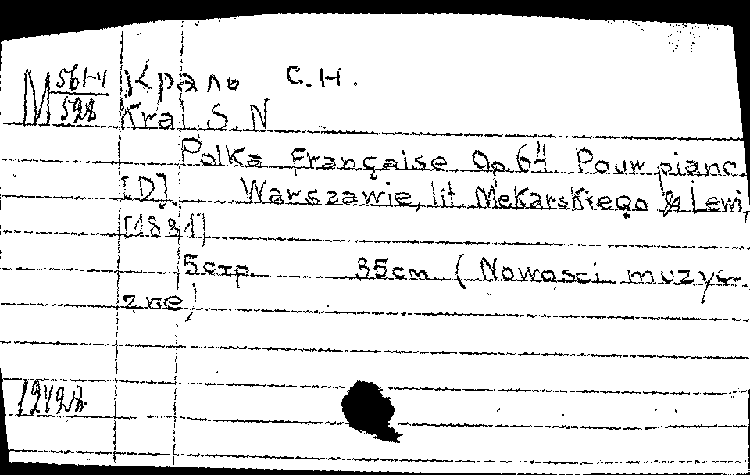 M 561-4/528 Краль С.Н.
Kral S. N
Polka Française Op. 64. Pour piano.
[D]. Warszawie, lit. Mekarskiego & Lewi,
[1881]
5 стр. 35 cm. (Nowosci muzycz-
zne)